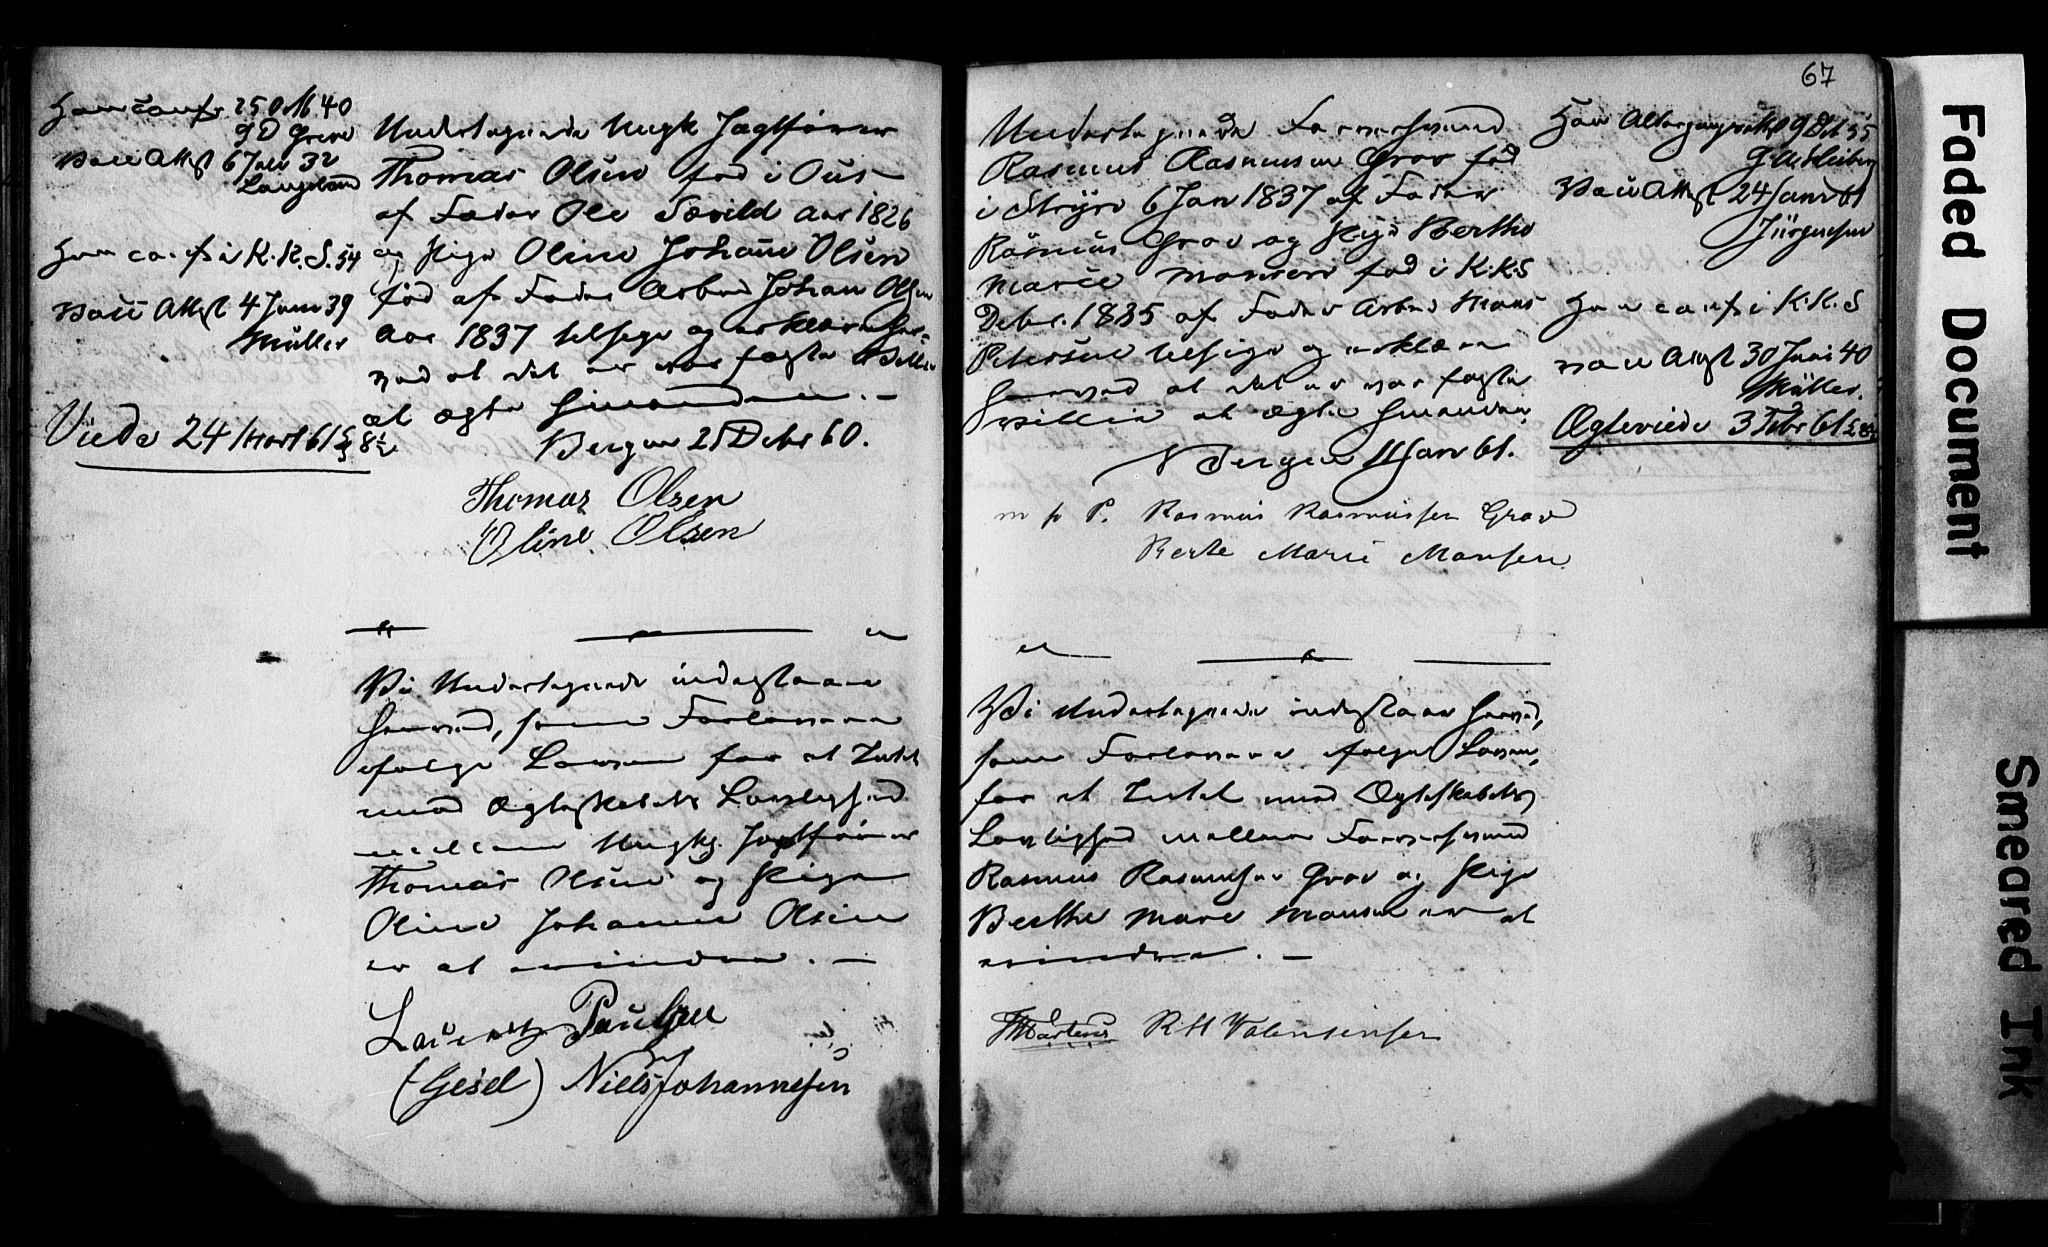 Han conf. 25 Oct 40
g D Greve
Vacc Attest 6 Juli 32
Langeland
Hun conf. i K. K. S. 54
Vacc Attest 4 Juni 39
Müller
Viede 24 Marts 61 § 8½
Undertegnede Ungk Jagtfører
Thomas Olsen fød i Ous
af Fader Ole Sæveld Aar 1826
og Pige Oline Johanne Olsen
fød af Fader Arbm Johan Olsen
Aar 1837 tilsige og erklære her
ved at det er vor fægte Villie
at ægte hinanden. –
Bergen 21 Debr 60.
Thomas Olsen
Oline Olsen
Vi Undertegnede indestaae
herved, som Forlovere
efølge Loven for at Intet
mod Ægteskabets Lovlighed
mellem Ungkg. Jagtfører
Thomas Olsen og Pige
Oline Johanne Olsen
er at erindre. –
Lauritz Paulsen
(Gesel) Niels Johannesen
67
Undertegnede Farversvend
Rasmus Rasmussen Grov fød
i Stryn 6 Jan 1837 af Fader
Rasmus Grov og Pige Berthe
Marie Monsen fød i K.K.S
Debr. 1835 af Fader Arbm Mons
Petersen tilsige og erklære
herved at det er vor fægte
Villie at ægte hinanden,
Bergen 11 Janv 61.
m p P. Rasmus Rasmussen Grov
Berte Marie Monsen
Vi Undertegnede indestaar herved,
som Forlovere efølge Loven,
for at Intet mod Ægteskabets
Lovlighed mellem Farversvend
Rasmus Rasmussen Grov og Pige
Berthe Marie Monsen er at
erindre. –
Martens R H Valentinsen
Han Altergangsattest 9 Debr 55
Vacc Attest 24 Janv 61
Jürgensen
Hun conf i K. K. S
Vacc Attest 30 Juni 40
Müller.
Ægteviede 3 Febr 61
Faded Document
Smeared Ink